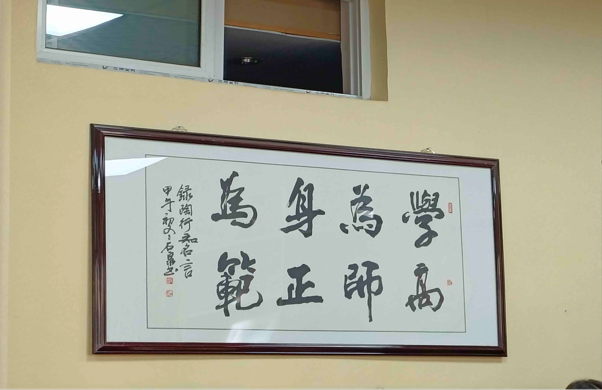 學高
為師
身正
為範
錄陶行知名言
甲午初